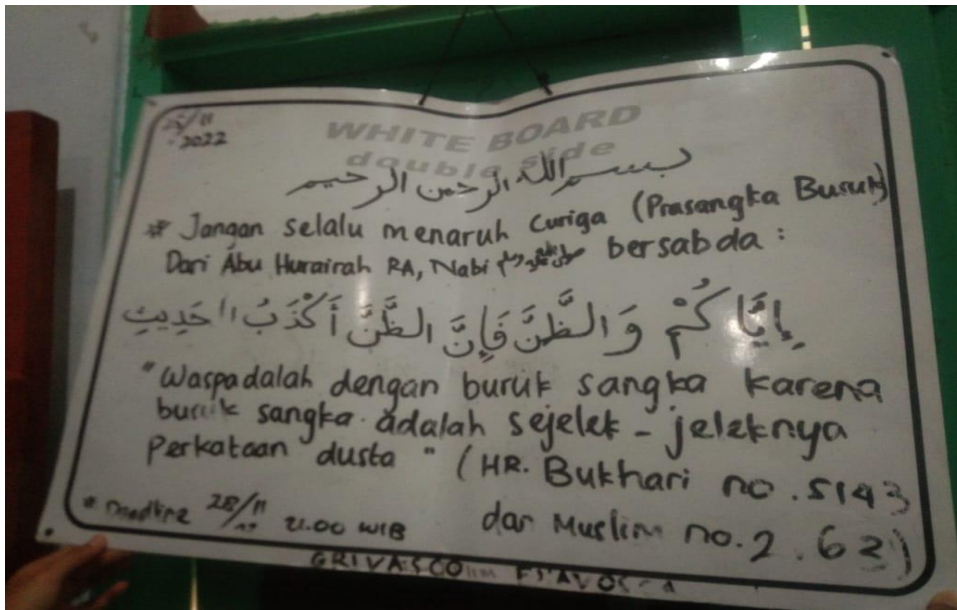 25/11
2022
WHITE BOARD
double side
بسم الله الرحمن الرحيم
* Jangan selalu menaruh curiga (Prasangka Buruk)
Dari Abu Hurairah RA, Nabi صلى الله عليه وسلم bersabda :
إِيَّا كُمْ وَالظَّنَّ فَإِنَّ الظَّنَّ أَكْذَبُ الحَدِيثِ
"Waspadalah dengan buruk sangka karena
buruk sangka adalah sejelek - jeleknya
Perkataan dusta " (HR. Bukhari no. 5143
dan Muslim no. 2. 63)
* Deadline 28/11 21.00 WIB
GRIVASCO